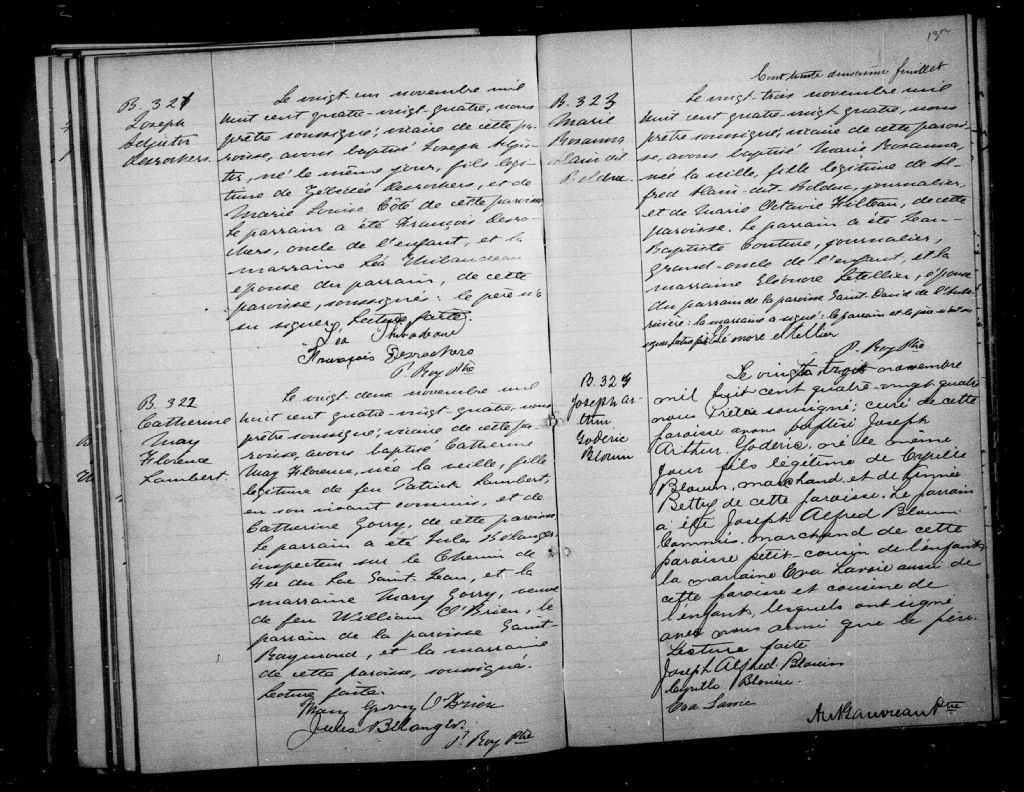 B. 321
Joseph
Adjutor
Desrochers.
Le vingt-un novembre mil
huit cent quatre-vingt quatre, nous
prêtre soussigné, vicaire de cette pa-
roisse, avons baptisé Joseph Adju-
tor, né le même jour, fils légi-
time de Desrochers, et de
Marie Louise Côté de cette paroisse
Le parrain a été François Desro-
chers, oncle de l'enfant, et la
marraine Léa Thibaudeau
epouse du parrain, de cette
paroisse, soussignés: le père n'a
su signer. Lecture faite.
Lea Thibodeau
François Desrochers
P. Roy Ptre
B. 322
Catherine
May
Florence
Lambert.
Le vingt-deux novembre mil
huit cent quatre-vingt-quatre, nous
prêtre soussigné, vicaire de cette pa-
roisse, avons baptisé Catherine
May Florence, née la veille, fille
légitime de feu Patrick Lambert,
en son vivant commis, et de
Catherine Gorry, de cette paroisse
Le parrain a été Jules Bélanger
inspecteur sur le Chemin de
Fer du Lac Saint Jean, et la
marraine Mary Gorry, veuve
de feu William O'Brien, le
parrain de la paroisse Saint
Raymond, et la marraine
de cette paroisse, soussigné.
Lecture faite.
Mary Gorry O'Brien
Jules Bélanger
P. Roy Ptre
Cent trente deuxième feuillet
B. 323
Marie
Rosanna
Blain dit
Bolduc.
Le vingt-trois novembre mil
huit cent quatre-vingt quatre, nous
prêtre soussigné, vicaire de cette parois-
se, avons baptisé Marie Rosanna,
née la veille, fille légitime de Al-
fred Blain-dit-Bolduc, journalier,
et de Marie Octavie Filteau, de cette
paroisse. Le parrain a été Jean-
Baptiste Couture, journalier,
grand-oncle de l'enfant, et la
marraine Eléonore Letellier, épouse
du parrain de la paroisse Saint-David de l'Aube-
rivière: la marraine a signé: le parrain et le père n'ont su
signer. Lecture faite. Eléonore Letellier
P. Roy Ptre
B. 324
Joseph Ar-
thur
Goderic
Blouin
Le vingt trois novembre
mil huit cent quatre-vingt quatre
nous Prêtre soussigné, curé de cette
paroisse avons baptisé Joseph
Arthur Goderic, né le même
jour fils légitime de Cyrille
Blouin, marchand et de
Betty de cette paroisse. Le parrain
a été Joseph Alfred Blouin
Commis marchand de cette
paroisse petit-cousin de l'enfant
la marraine Eva Lavoie aussi de
cette paroisse et cousine de
l'enfant, lesquels ont signé
avec nous ainsi que le père.
Lecture faite
Joseph Alfred Blouin
Cyrille Blouin
Eva Lavoie
Ptre